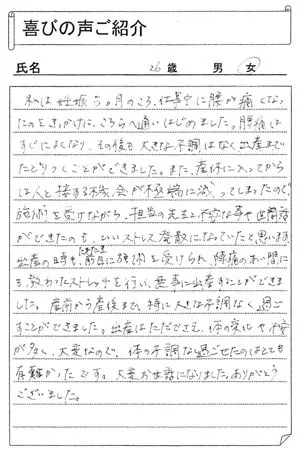 喜びの声ご紹介
氏名 26歳 男 女
私は妊娠5ヶ月のころ、仕事中に腰が痛くなっ
たのをきっかけに、こちらへ通いはじめました。腰痛は
すぐによくなり、その後も大きな不調はなく出産まで
たどりつくことができました。また、産休に入ってから
は人と接する機会が極端に減ってしまったので
施術を受けながら、担当の先生と不安な事や世間話
ができたのも、いいストレス発散になっていたと思います。
出産の時も、前日に施術を受けられ、陣痛の合い間に
も教わったストレッチを行い、無事に出産することができま
した。産前から産後まで、特に大きな不調なく過ご
すことができました。出産はただでさえ、体の変化や不安
が多く、大変なので、体の不調なく過ごせたのはとても
有難かったです。大変お世話になりました。ありがとう
ございました。